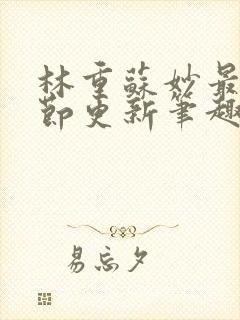 林重蘇妙最
節更新筆趣
易忘夕